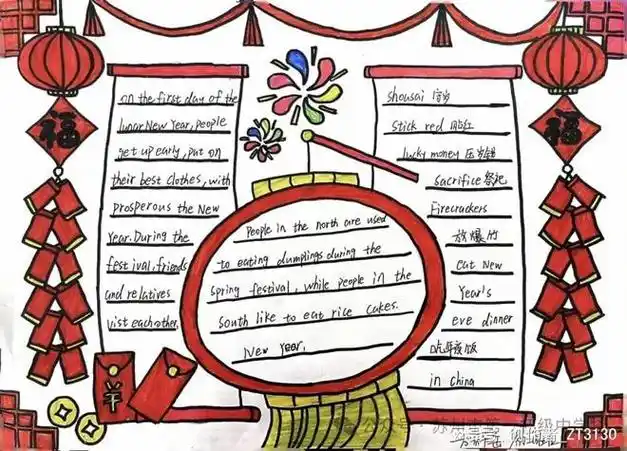 on the first day of the
lunar New Year, people
get up early, put on
their best clothes, with
prosperous the New
Year. During the
fest ival, friends
and relatives
vist each other.
People in the north are used
to eating dumplings during the
spring festival, while people in the
south like to eat rice cakes.
New Year.
shousai 守岁
stick red 贴红
lucky money 压岁钱
sacrifice 祭祀
Firecrackers
放爆竹
eat New
Year's
eve dinner
吃年夜饭
in china
福
福
ZT3130